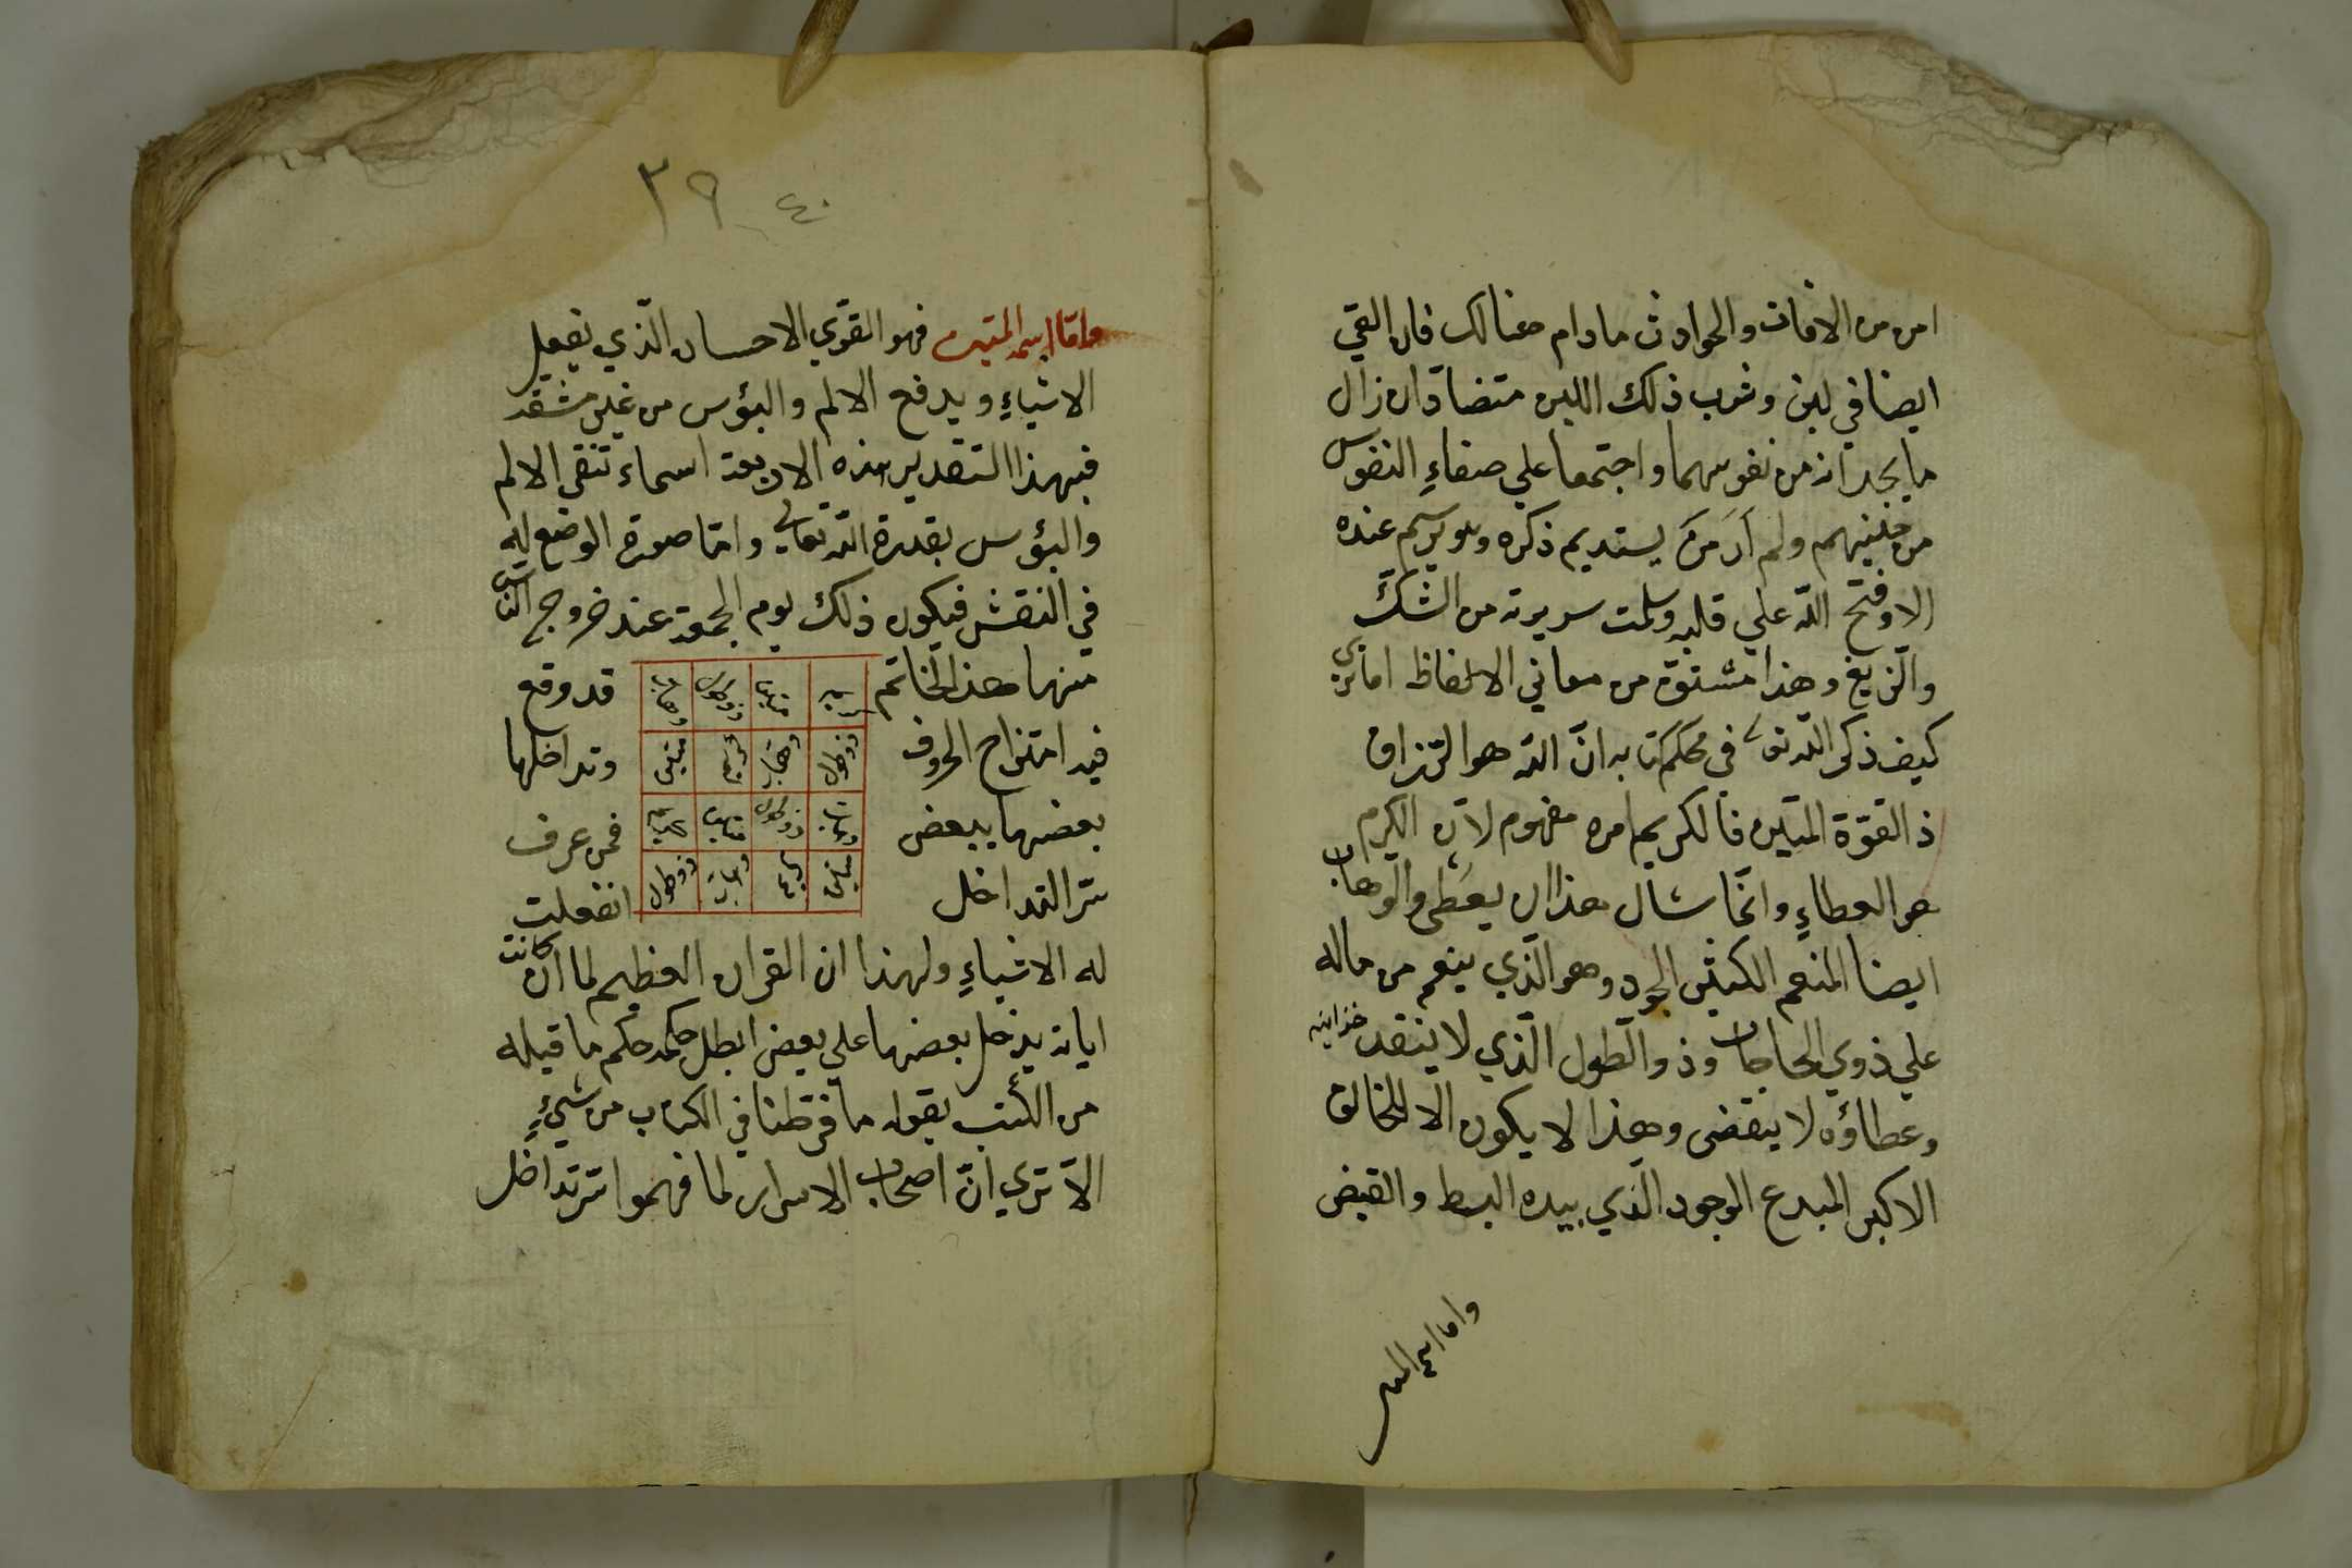 امن من الافات والحوادث مادام هنالك فان القي
ايضا في لبن وشرب ذلك اللبن متضادان زال
ما يجدانه من نفوسهما واجتمعا علي صفاءِ النفوس
من حينهم ولم أرَ مَن يستديم ذكره ويرسم عنده
الا وفتح اللّه علي قلبه وسلمت سريرته من الشكّ
والزيغ وهذا مشتقة من معاني الالفاظ اما تري
كيف ذكر اللّه تع في محكم كتابه انّ اللّه هو الرّزاق
ذ القوّة المتين فالكريم امره مفهوم لانّ الكرم
هو العطاءِ وانّما شال هذا ان يعطى والوهاب
ايضا المنعم الكثير الجود وهو الّذي ينعم من ماله
علي ذوي الحاجات وذو الطول الّذي لا ينفد خزاينه
وعطاؤه لا ينقضى وهذا لا يكون الا للخالق
الاكبر المبدع الوجود الّذي بيده البسط والقبض
واما اسمه المتين
٣٩ ٤٠
وامّا اسمه المتين فهو القوّي الاحسان الّذي يفعل
الاشياءِ ويدفع الالم والبؤس من غير مشقّة
فبهذا التقدير هذه الاربعة اسماء تنفى الالم
والبؤس بقدرة اللّه تعالي وامّا صورة الوضع له
في النقش فيكون ذلك يوم الجمعة عند خروج النّاس
منها هذا الخاتم قد وقع
فيه امتزاج الحروف وتداخلها
بعضها ببعض فمن عرف
سرّ التداخل انفعلت
كريم وهاب ذو طول متين
ذو طول وهاب كريم متين
وهاب ذو طول متين كريم
متين كريم وهاب ذو طول
له الاشياءِ ولهذا ان القران العظيم لما ان كانت
اياته يدخل بعضها علي بعض ابطل حكمه حكم ما قبله
من الكُتب بقوله ما فرّطنا في الكتاب من شيءٍ
الا تري انّ اصحاب الاسرار لما فهموا سرّ تداخل